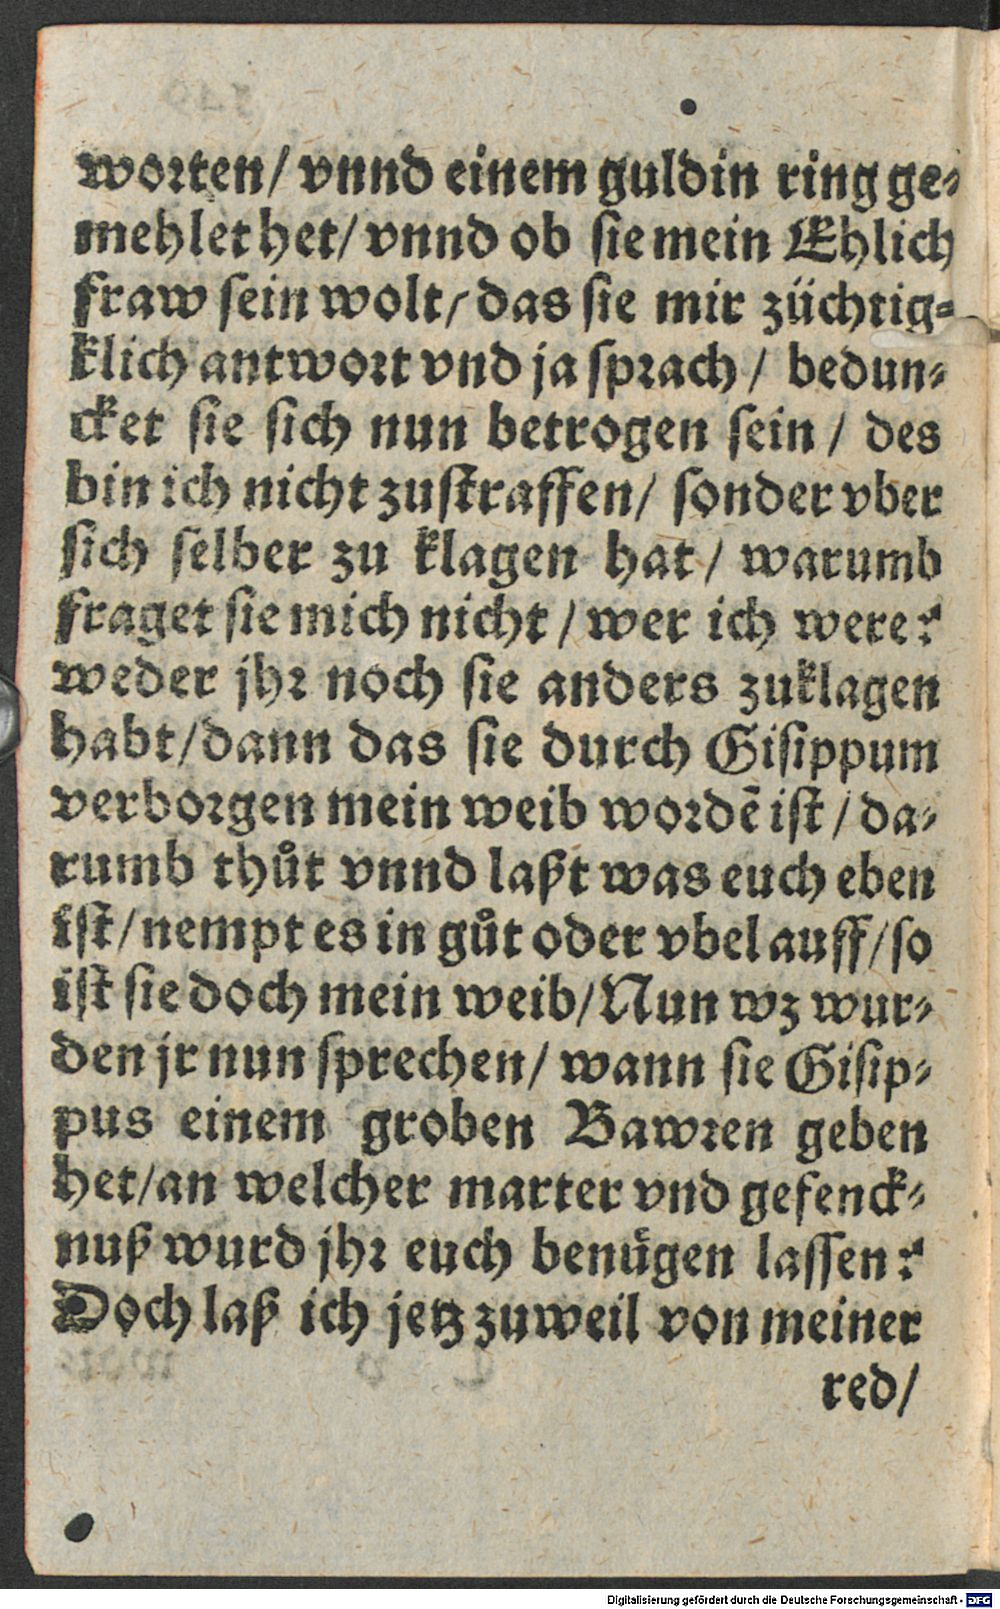 worten/ vnnd einem guldin ring ge⸗
mehlet het/ vnnd ob sie mein Ehlich
fraw sein wolt/ das sie mir züchtig⸗
klich antwort vnd ja sprach/ bedun⸗
cket sie sich nun betrogen sein/ des
bin ich nicht zustraffen/ sonder vber
sich selber zu klagen hat/ warumb
fraget sie mich nicht/ wer ich were?
weder jhr noch sie anders zuklagen
habt/ dann das sie durch Gisippum
verborgen mein weib wordẽ ist/ da⸗
rumb thůt vnnd laßt was euch eben
ist/ nempt es in gůt oder vbel auff/ so
ist sie doch mein weib/ Nun wz wur⸗
den jr nun sprechen/ wann sie Gisip⸗
pus einem groben Bawren geben
het/ an welcher marter vnd gefenck⸗
nuß wurd jhr euch benügen lassen?
Doch laß ich jetz zuweil von meiner
red/
Digitalisierung gefördert durch die Deutsche Forschungsgemeinschaft - DFG